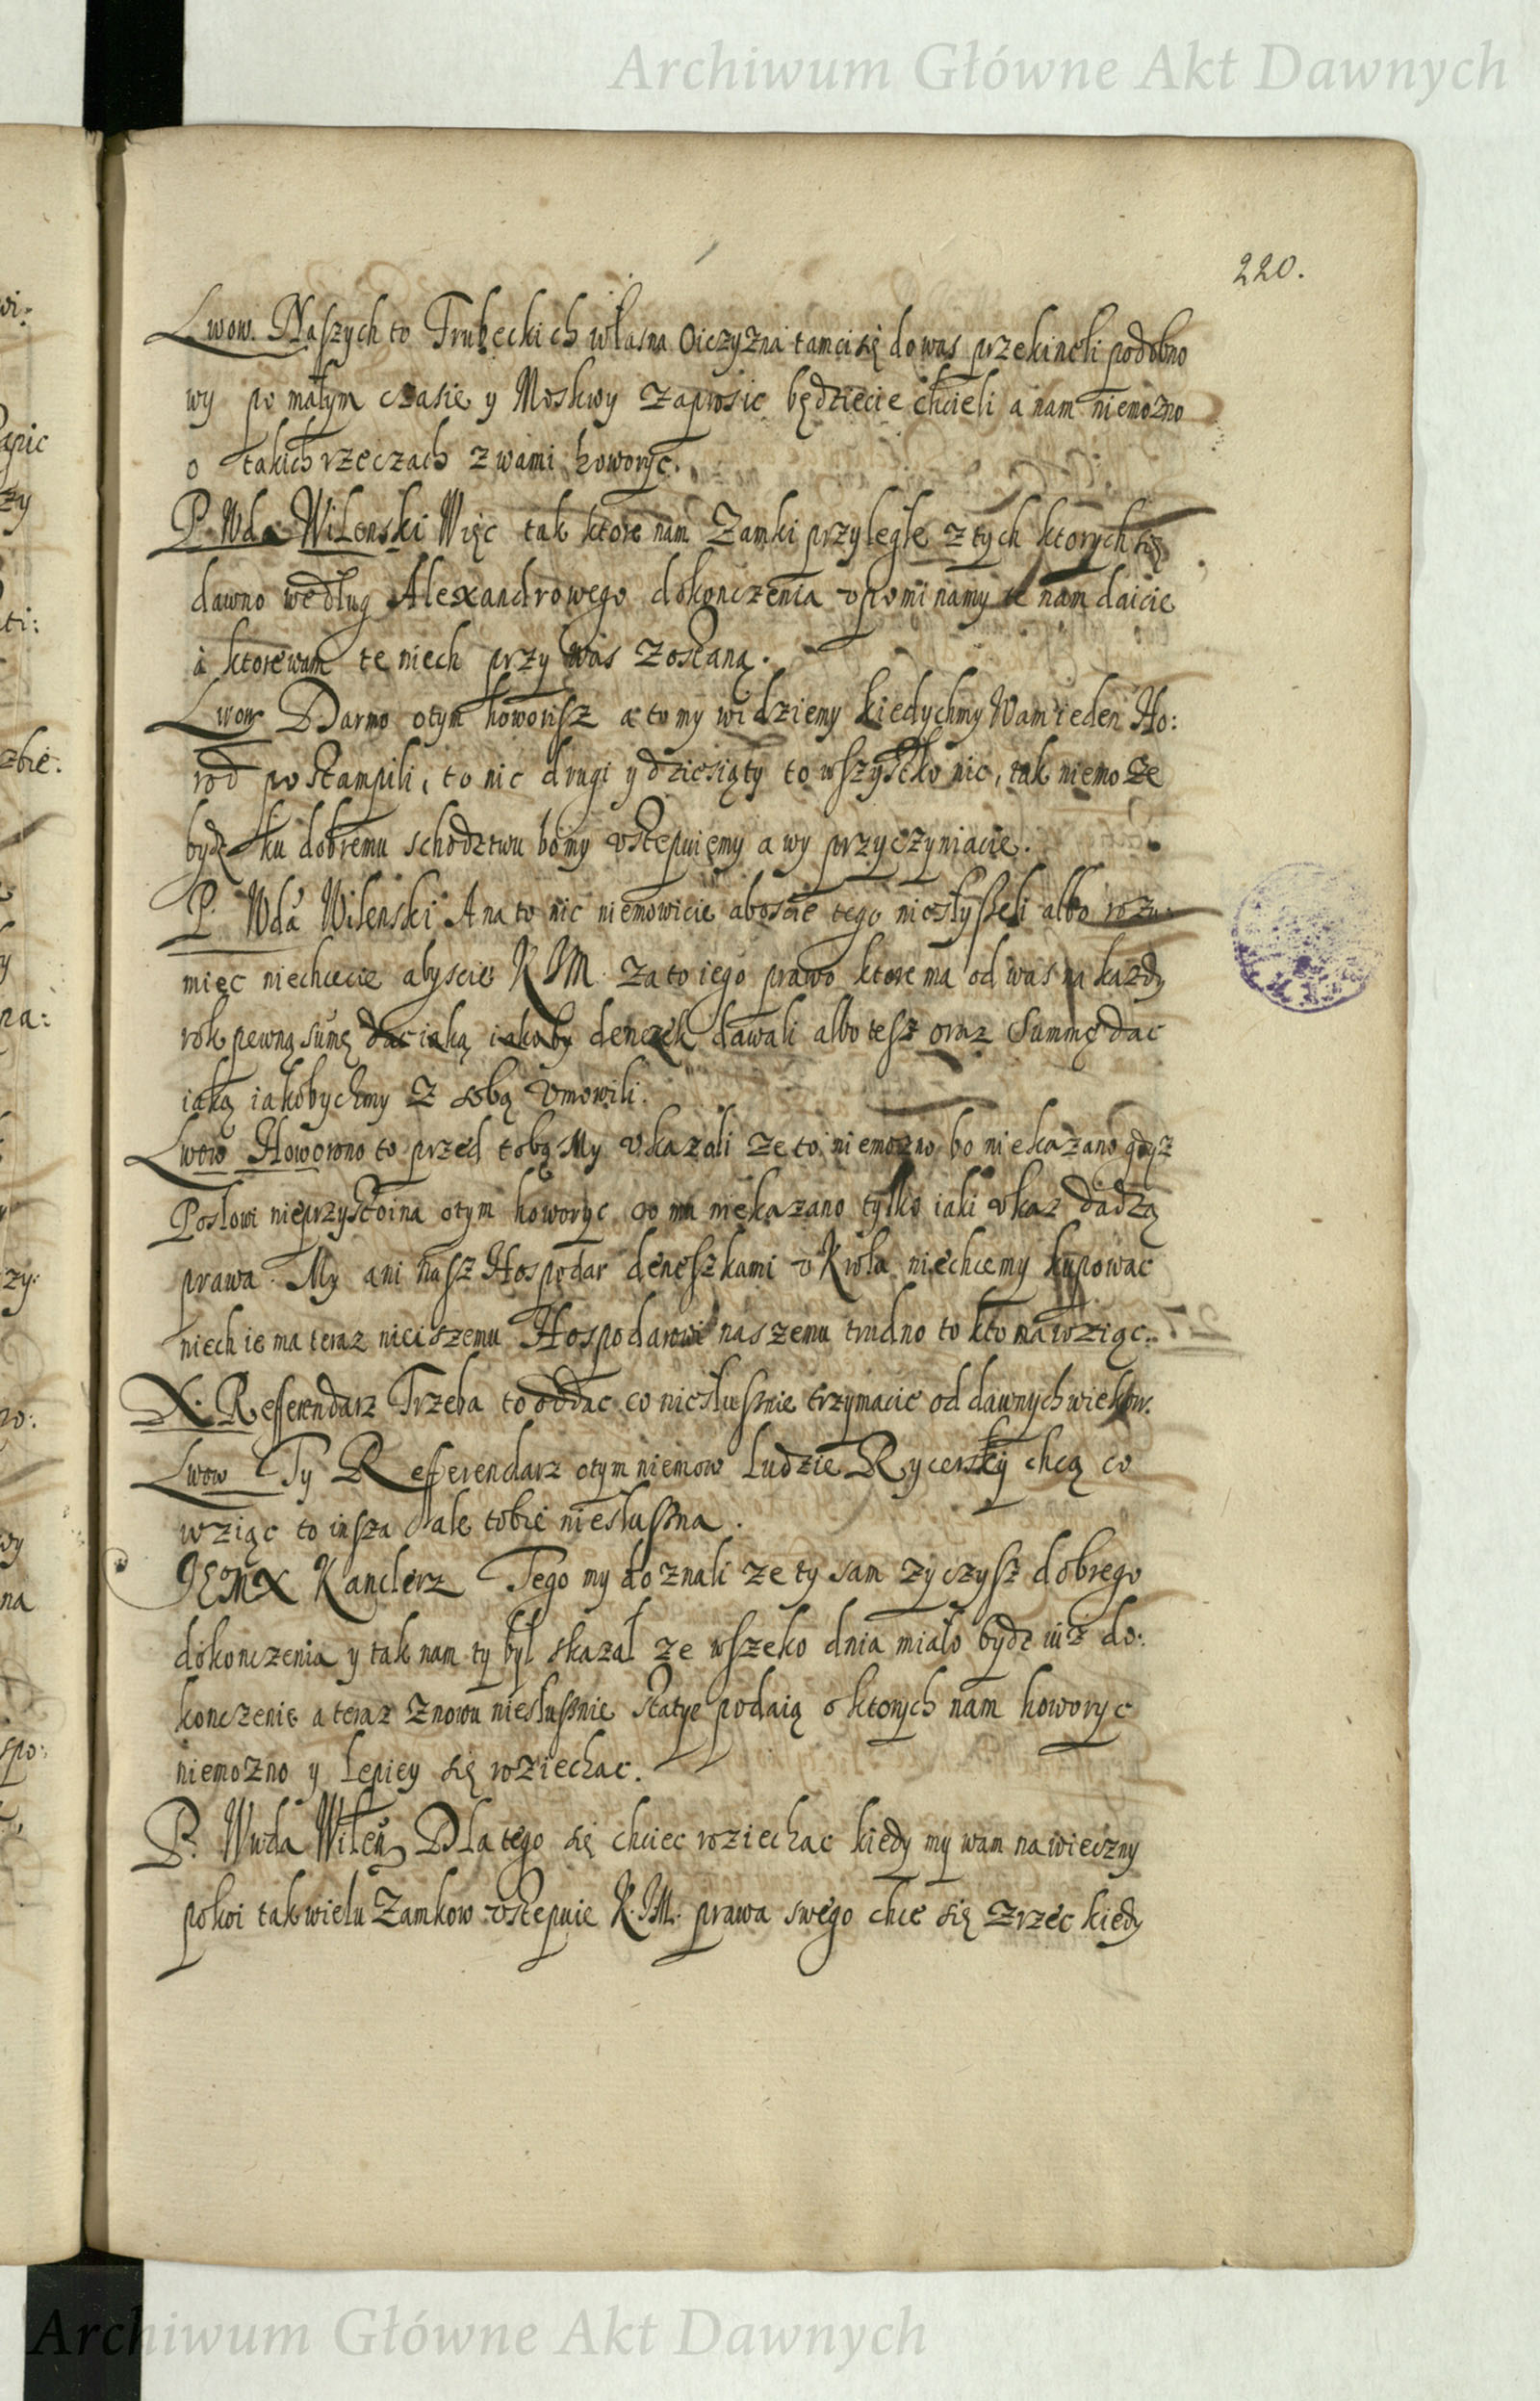 Archiwum Główne Akt Dawnych
220.
Lwow. Naszych to Trubeckich własna oiczyzna tamci się do was przekineli podobno
wy po małym czasie y Moskwy zaprosic będziecie chcieli a nam niemozno
o takich rzeczach z wami howoryc.
P. Wda Wilenski Więc tak ktore nam Zamki przyległe z tych ktorych się
dawno według Alexandrowego dokonczenia vpominamy te nam daicie
a ktore wam te niech przy was zostaną.
Lwow Darmo o tym howorisz a to my widziemy kiedychmy Wam ieden Ho:
rod postampili, to nic drugi y dziesiąty to wszystko nic, tak niemoze
bydz ku dobremu schodztwu bo my vstepuiemy a wy przyczyniacie.
P. Wda Wilenski A na to nic niemowicie aboscie tego niesłyszeli albo rozu:
miec niechcecie abyscie K JM. za to iego prawo ktore ma od was na kazdy
rok pewną sumę dac iaką iakoby deneżek dawali albo tesz oraz Summę dac
iaką iakobychmy z sobą vmowili.
Lwow Howorono to przed tobą My vkazali ze to niemozno bo niekazano gdyz
Posłowi nieprzystoina o tym howoryc co mu niekazano tylko iaki vkaz dadzą
prawa. My ani nasz Hospodar deneszkami v Krola niechcemy kupowac
niech ie ma teraz nieiszemu Hospodarowi naszemu trudno to kto ma wziąc.
X. Referendarz Trzeba to oddac co niesłusznie trzymacie od dawnych wiekow.
Lwow Ty Referendarz o tym niemow ludzie Rycerskij chcą co
wziąc to insza ale tobie niesłuszna.
JEMX Kanclerz Tego my doznali ze ty sam zyczysz dobrego
dokonczenia y tak nam ty był skazał ze wszeko dnia miało bydz iuż do:
konczenie a teraz znowu niesłusznie statye podaią o ktorych nam howoryc
niemozno y lepiey się roziechac.
P. Wwda Wileń Dla tego się chciec roziechac kiedy my wam na wieczny
pokoi tak wielu Zamkow vstepuie K. JM. prawa swego chce się zrzec kiedy
Archiwum Główne Akt Dawnych